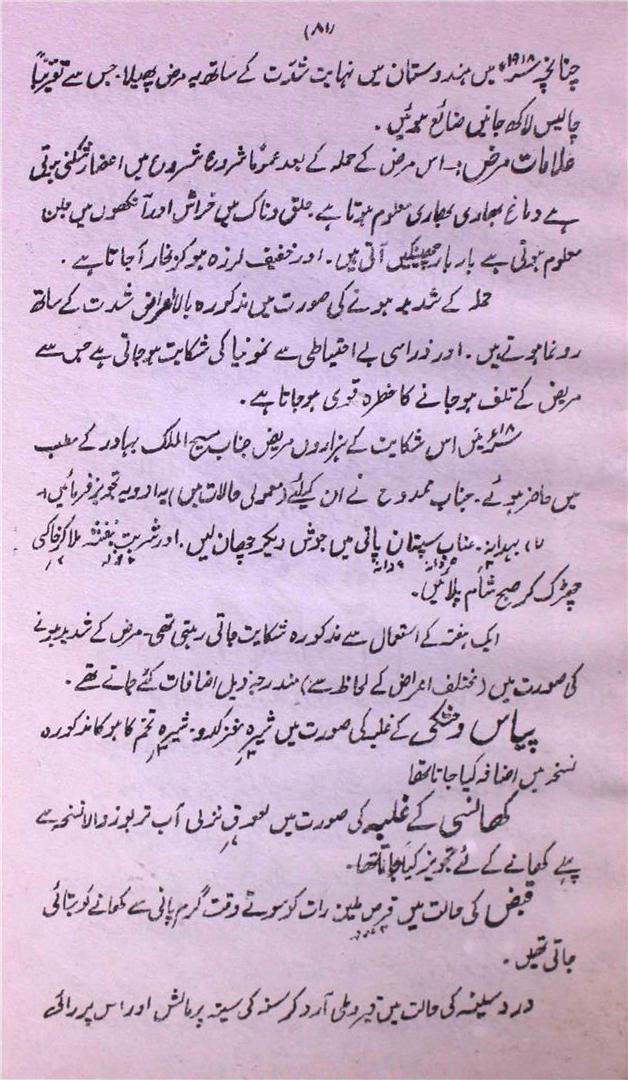 (۸۱)
چنانچہ ۱۹۱۸ء میں ہندوستان میں نہایت شدّت کے ساتھ یہ مرض پھیلا۔ جس سے تقریباً
چالیس لاکھ جانیں ضائع ہوئیں۔
علامات مرض:۔ اس مرض کے حملہ کے بعد عموماً شروع شروع میں اعضا شکنی ہوتی
ہے دماغ بھاری بھاری معلوم ہوتا ہے۔ حلق و ناک میں خراش اور آنکھوں میں جلن
معلوم ہوتی ہے بار بار چھینکیں آتی ہیں۔ اور خفیف لرزہ ہو کر بخار آجاتا ہے۔
حملہ کے شدید ہونے کی صورت میں مذکورہ بالا اعراض شدت کے ساتھ
رونما ہوتے ہیں۔ اور ذرا سی بے احتیاطی سے نمونیا کی شکایت ہو جاتی ہے جس سے
مریض کے تلف ہو جانے کا خطرہ قوی ہو جاتا ہے۔
۱۸ء میں اس شکایت کے ہزاروں مریض جناب مسیح الملک بہادر کے مطب
میں حاضر ہوئے۔ جناب ممدوح نے ان کیلئے (معمولی حالات میں) یہ ادویہ تجویز فرمائیں۔
بہدانہ۔ عناب سپستان پانی میں جوش دیکر چھان لیں۔ اور شربت بنفشہ ملا کر خاکسی
چھڑک کر صبح شام پلائیں۔
ایک ہفتہ کے استعمال سے مذکورہ شکایت جاتی رہتی تھی۔ مرض کے شدید ہونے
کی صورت میں (مختلف اعراض کے لحاظ سے) مندرجہ ذیل اضافات کئے جاتے تھے۔
پیاس و خشکی کے غلبہ کی صورت میں شیرہ مغز کدو۔ شیرہ تخم کاہو کا مذکورہ
نسخہ میں اضافہ کیا جاتا تھا
کھانسی کے غلبہ کی صورت میں لعوق نزلی آب تربوز والا نسخہ سے
پہلے کھانے کے لئے تجویز کیا جاتا تھا۔
قبض کی حالت میں قرص ملین رات کو سوتے وقت گرم پانی سے کھانے کو بتائی
جاتی تھیں۔
درد سینہ کی حالت میں قیروطی آرد کرسنہ کی سینہ پر مالش اور اس پر رائی